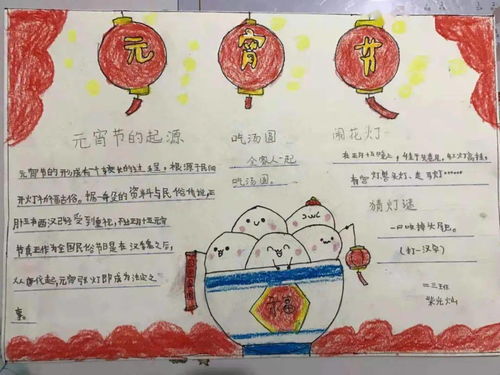 元宵节
元宵节的起源
元宵节的形成有一个较长的过程，根源于民间
开灯祈福古俗。据一般的资料与民俗传说，正
月十五在西汉已经受到重视，
节真正作为全国民俗节日是在汉魏之后，
从唐代起，元宵张灯即成为法定之
事。
吃汤圆
全家人一起
吃汤圆。
闹花灯
有宫灯、兽头灯、走马灯……
猜灯谜
一口咬掉牛尾巴。
(打一汉字)
幸福